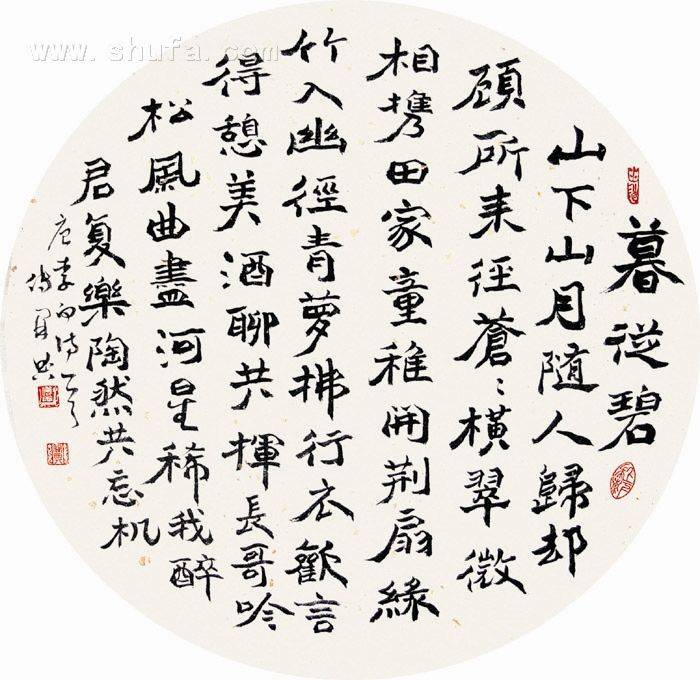 www.shufa.com
暮從碧
山下山月隨人歸却
顧所来徑蒼〻横翠微
相携田家童稚開荆扇緣
竹入幽徑青萝拂行衣歡言
得憩美酒聊共揮長哥吟
松風曲盡河星稀我醉
君复樂陶然共忘机
唐李白诗一首